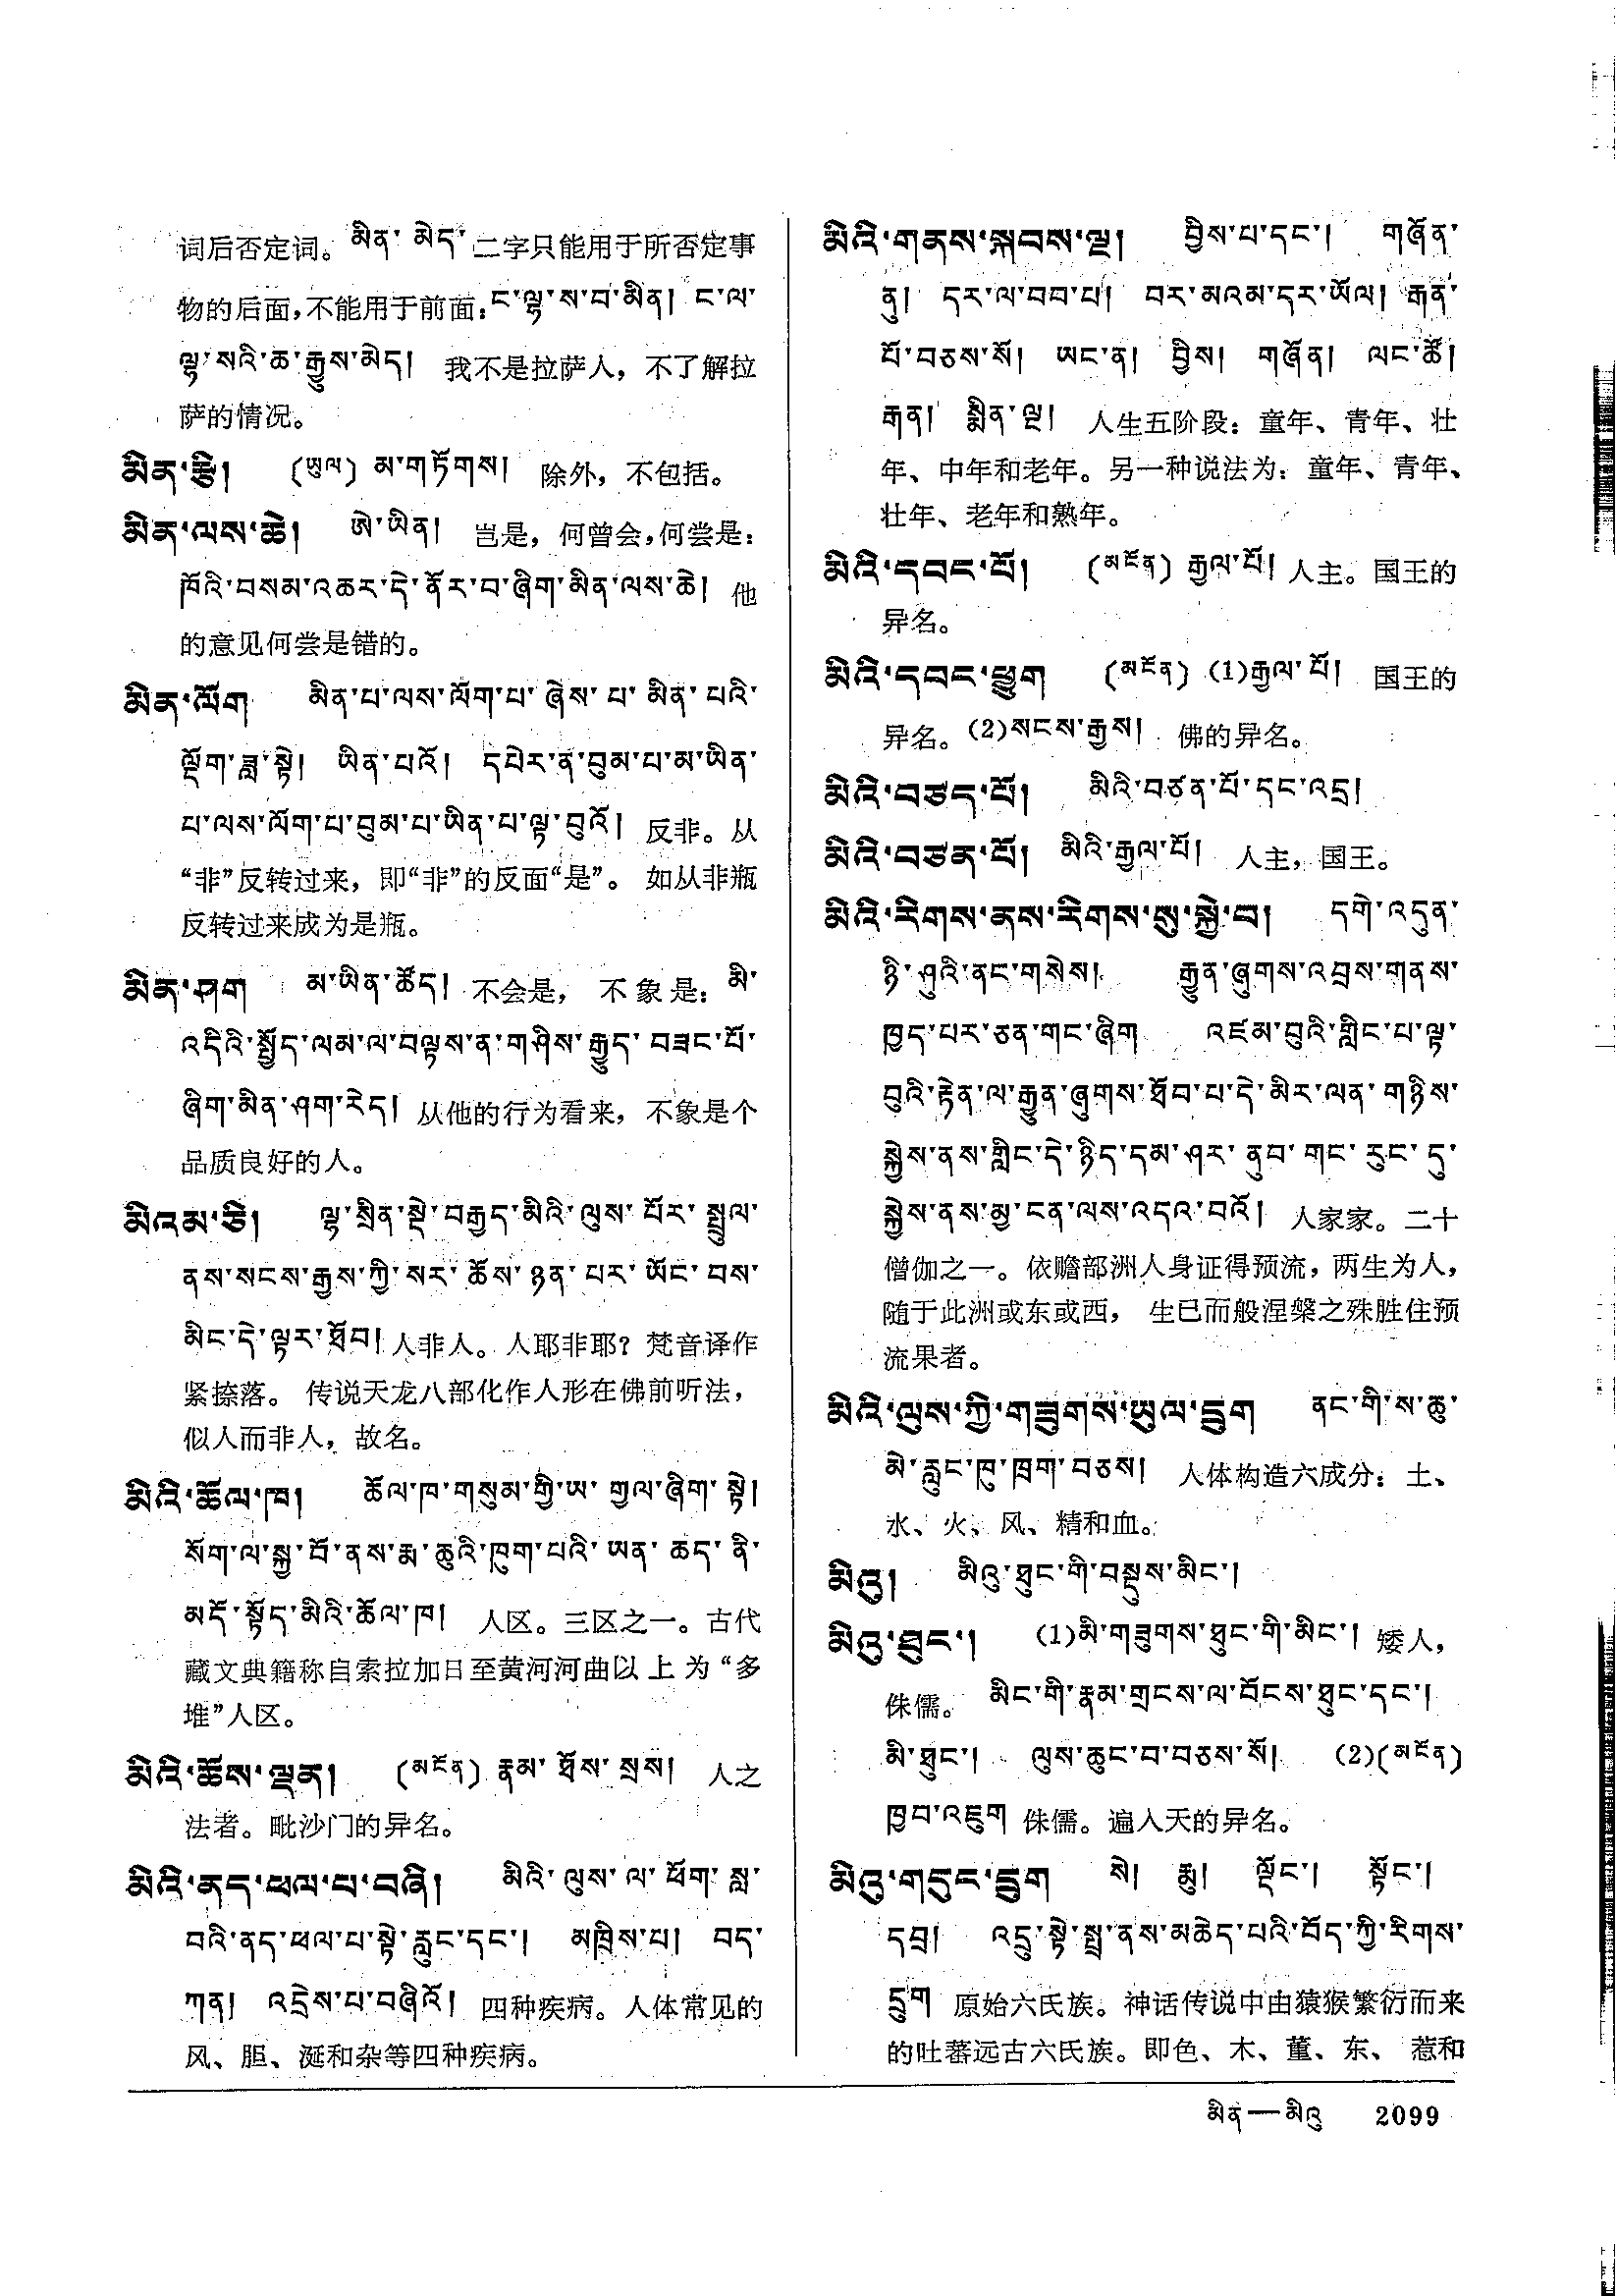 词后否定词。མིན་ མེད་二字只能用于所否定事
物的后面，不能用于前面：ང་ལྷ་ས་བ་མིན། ང་ལ་
ལྷ་སའི་ཆ་རྒྱུས་མེད། 我不是拉萨人，不了解拉
萨的情况。
མིན་རྩེ། (ཡུལ) མ་གཏོགས། 除外，不包括。
མིན་ལས་ཆེ། ཨེ་ཡིན། 岂是，何曾会，何尝是：
ཁོའི་བསམ་འཆར་དེ་ནོར་བ་ཞིག་མིན་ལས་ཆེ། 他
的意见何尝是错的。
མིན་ལོག མིན་པ་ལས་ལོག་པ་ ཞེས་ པ་ མིན་ པའི་
ལྡོག་ཟླ་སྟེ། ཡིན་པའོ། དཔེར་ན་བུམ་པ་མ་ཡིན་
པ་ལས་ལོག་པ་བུམ་པ་ཡིན་པ་ལྟ་བུའོ། 反非。从
“非”反转过来，即“非”的反面“是”。 如从非瓶
反转过来成为是瓶。
མིན་ཤག མ་ཡིན་ཚོད། 不会是， 不象是：མི་
འདིའི་སྤྱོད་ལམ་ལ་བལྟས་ན་གཤིས་རྒྱུད་ བཟང་པོ་
ཞིག་མིན་ཤག་རེད། 从他的行为看来，不象是个
品质良好的人。
མིའམ་ཅི། ལྷ་སྲིན་སྡེ་བརྒྱད་མིའི་ལུས་ པོར་ སྤྲུལ་
ནས་སངས་རྒྱས་ཀྱི་སར་ ཆོས་ཉན་ པར་ ཡོང་ བས་
མིང་དེ་ལྟར་ཐོབ། 人非人。人耶非耶？梵音译作
紧捺落。 传说天龙八部化作人形在佛前听法，
似人而非人，故名。
མིའི་ཆོལ་ཁ། ཆོལ་ཁ་གསུམ་གྱི་ཡ་ གྱལ་ཞིག་ སྟེ།
སོག་ལ་སྐྱ་བོ་ནས་རྨ་ཆུའི་ཁུག་པའི་ ཡན་ ཆད་ ནི་
མདོ་སྟོད་མིའི་ཆོལ་ཁ། 人区。三区之一。古代
藏文典籍称自索拉加日至黄河河曲以上为“多
堆”人区。
མིའི་ཆོས་ལྡན། (མངོན) རྣམ་ ཐོས་ སྲས། 人之
法者。毗沙门的异名。
མིའི་ནད་ཕལ་པ་བཞི། མིའི་ ལུས་ ལ་ ཕོག་ སླ་
བའི་ནད་ཕལ་པ་སྟེ་རླུང་དང་། མཁྲིས་པ། བད་
ཀན། འདྲེས་པ་བཞིའོ། 四种疾病。人体常见的
风、胆、涎和杂等四种疾病。
མིའི་གནས་སྐབས་ལྔ། བྱིས་པ་དང་། གཞོན་
ནུ། དར་ལ་བབ་པ། བར་མའམ་དར་ཡོལ། རྒན་
པོ་བཅས་སོ། ཡང་ན། བྱིས། གཞོན། ལང་ཚོ།
རྒན། སྨིན་ལྔ། 人生五阶段：童年、青年、壮
年、中年和老年。另一种说法为：童年、青年、
壮年、老年和熟年。
མིའི་དབང་པོ། (མངོན) རྒྱལ་པོ། 人主。国王的
异名。
མིའི་དབང་ཕྱུག (མངོན) (1)རྒྱལ་ པོ། 国王的
异名。(2)སངས་རྒྱས། 佛的异名。
མིའི་བཙད་པོ། མིའི་བཙན་པོ་དང་འདྲ།
མིའི་བཙན་པོ། མིའི་རྒྱལ་པོ། 人主，国王。
མིའི་རིགས་ནས་རིགས་སུ་སྐྱེ་བ། དགེ་འདུན་
ཉི་ཤུའི་ནང་གསེས། རྒྱུན་ཞུགས་འབྲས་གནས་
ཁྱད་པར་ཅན་གང་ཞིག འཛམ་བུའི་གླིང་པ་ལྟ་
བུའི་རྟེན་ལ་རྒྱུན་ཞུགས་ཐོབ་པ་དེ་མིར་ལན་ གཉིས་
སྐྱེས་ནས་གླིང་དེ་ཉིད་དམ་ཤར་ ནུབ་ གང་ རུང་ དུ་
སྐྱེས་ནས་མྱ་ངན་ལས་འདའ་བའོ། 人家家。二十
僧伽之一。依赡部洲人身证得预流，两生为人，
随于此洲或东或西， 生已而般涅槃之殊胜住预
流果者。
མིའི་ལུས་ཀྱི་གཟུགས་ཡུལ་དྲུག ནང་གི་ས་ཆུ་
མེ་རླུང་ཁུ་ཁྲག་བཅས། 人体构造六成分：土、
水、火、风、精和血。
མིའུ། མིའུ་ཐུང་གི་བསྡུས་མིང་།
མིའུ་ཐུང་། (1)མི་གཟུགས་ཐུང་གི་མིང་། 矮人，
侏儒。 མིང་གི་རྣམ་གྲངས་ལ་བོངས་ཐུང་དང་།
མི་ཐུང་། ལུས་ཆུང་བ་བཅས་སོ། (2)(མངོན)
ཁྱབ་འཇུག 侏儒。遍入天的异名。
མིའུ་གདུང་དྲུག སེ། རྨུ། ལྡོང་། སྟོང་།
དབྲ། འདྲུ་སྟེ་སྤྲ་ནས་མཆེད་པའི་བོད་ཀྱི་རིགས་
དྲུག 原始六氏族。神话传说中由猿猴繁衍而来
的吐蕃远古六氏族。即色、木、董、东、 惹和
མིན—མིའུ 2099